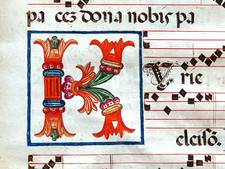 pa cem dona nobis pa
K Yrie
eleisō.